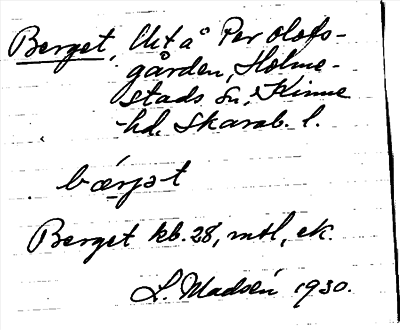 Berget, Utå Per olofs-
gården, Holme-
stads sn, Kinne
hd. Skarab. l.
bærjət
Berget kb. 28, mtl, ek.
L. Madsén 1930.